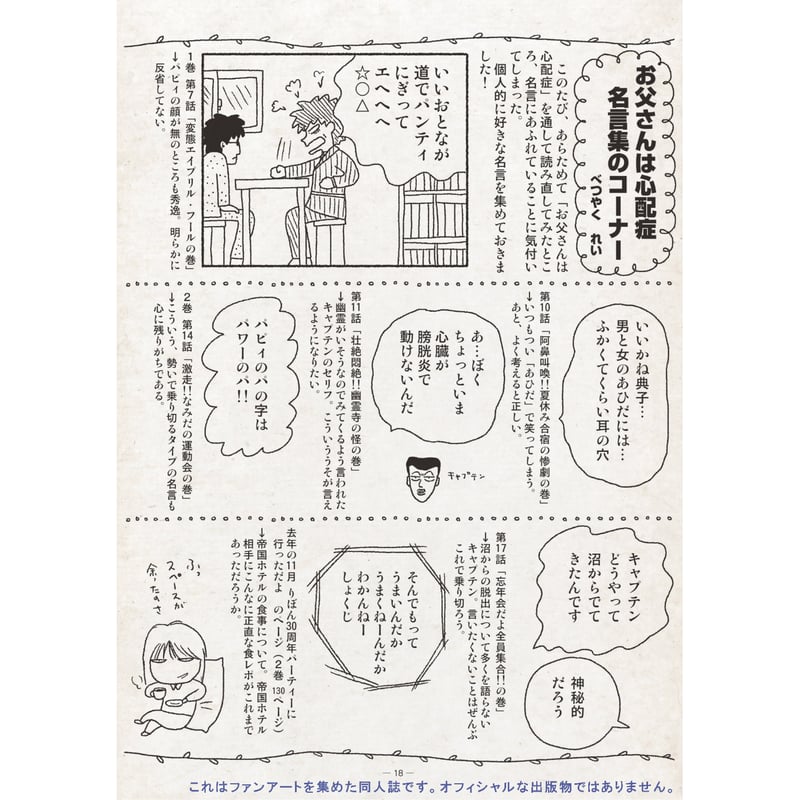 お父さんは心配症
名言集のコーナー
べつやく れい
このたび、あらためて「お父さんは
心配症」を通して読み直してみたとこ
ろ、名言にあふれていることに気付い
てしまった。
個人的に好きな名言を集めておきま
した！
いいおとなが
道でパンティ
にぎって
エヘヘヘ
☆○△
1巻 第7話「変態エイプリル・フールの巻」
→パピィの顔が無のところも秀逸。明らかに
反省してない。
いいかね典子…
男と女のあひだには…
ふかくてくらい耳の穴
第10話「阿鼻叫喚!!夏休み合宿の惨劇の巻」
→いつもつい「あひだ」で笑ってしまう。
あと、よく考えると正しい。
あ…ぼく
ちょっといま
心臓が
膀胱炎で
動けないんだ
キャプテン
第11話「壮絶悶絶!!幽霊寺の怪の巻」
→幽霊がいそうなのでみてくるよう言われた
キャプテンのセリフ。こういううそが言え
るようになりたい。
パピィのパの字は
パワーのパ!!
2巻 第14話「激走!!なみだの運動会の巻」
→こういう、勢いで乗り切るタイプの名言も
心に残りがちである。
キャプテン
どうやって
沼からでて
きたんです
神秘的
だろう
第17話「忘年会だよ全員集合!!の巻」
→沼からの脱出について多くを語らない
キャプテン。言いたくないことはぜんぶ
これで乗り切ろう。
そんでもって
うまいんだか
うまくねーんだか
わかんねー
しょくじ
去年の11月 りぼん30周年パーティーに
行っただよ のページ（2巻 130ページ）
→帝国ホテルの食事について。帝国ホテル
相手にこんなに正直な食レポがこれまで
あっただろうか。
ふっ
スペースが
余ったのさ
—18—
これはファンアートを集めた同人誌です。オフィシャルな出版物ではありません。